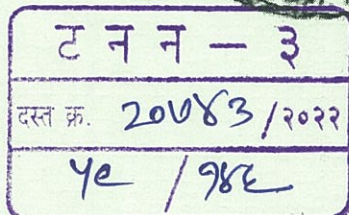 ट न न - ३
दस्त क्र. २०७४३/२०२२
५९ / १४६